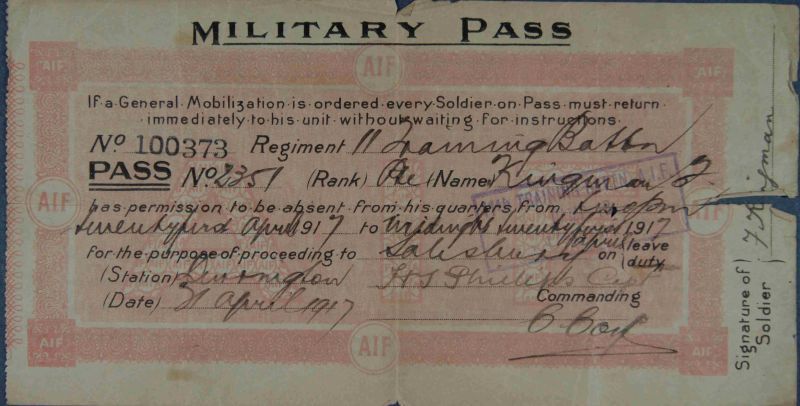 MILITARY PASS
AIF AIF AIF
If a General Mobilization is ordered every Soldier on Pass must return
immediately to his unit without waiting for instructions.
No 100373 Regiment 11 Training Battn
PASS No 2351 (Rank) Pte (Name) Kingman F
has permission to be absent from his quarters from
twentyfirst April 1917 to Midnight twentyfirst April 1917
for the purpose of proceeding to Salisbury on leave duty
(Station) Durrington H S Phillips Capt
(Date) 21 April 1917 Commanding
C Coy
AIF AIF
AIF AIF AIF
TRAINING A.I.F.
Signature of Soldier F Kingman